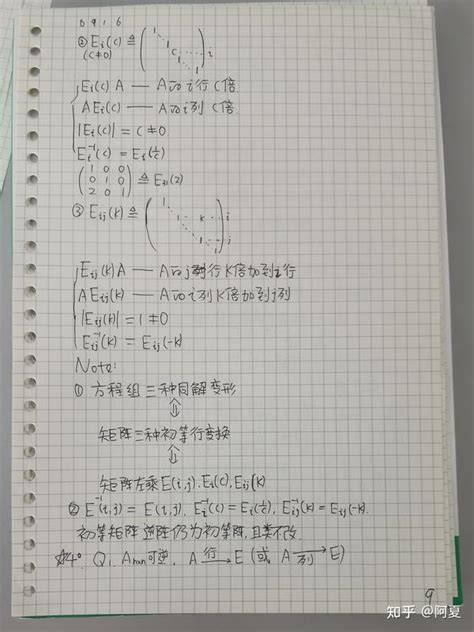 0 9 1 6
② Eᵢ(c) ≜ ( 1 1 c 1 1 ) i
(c≠0)
Eᵢ(c) A — A的i行C倍.
A Eᵢ(c) — A的i列C倍.
|Eᵢ(c)| = C ≠ 0.
Eᵢ⁻¹(c) = Eᵢ(1/c)
( 1 0 0
0 1 0 ) ≜ E₃₁(2)
2 0 1
③ Eᵢⱼ(k) ≜ ( 1 1 k 1 1 ) i j
Eᵢⱼ(k) A — A的j行K倍加到i行
A Eᵢⱼ(k) — A的i列K倍加到j列
|Eᵢⱼ(k)| = 1 ≠ 0
Eᵢⱼ⁻¹(k) = Eᵢⱼ(-k)
Note:
① 方程组三种同解变形
⇕
矩阵三种初等行变换
⇕
矩阵左乘E(i,j), Eᵢ(c), Eᵢⱼ(k)
② E⁻¹(i,j) = E(i,j), Eᵢ⁻¹(c) = Eᵢ(1/c), Eᵢⱼ⁻¹(k) = Eᵢⱼ(-k).
初等矩阵逆阵仍为初等阵,且类不改.
Q₁ A 可逆, A 行→ E (或 A 列→ E)
9
知乎 @阿夏